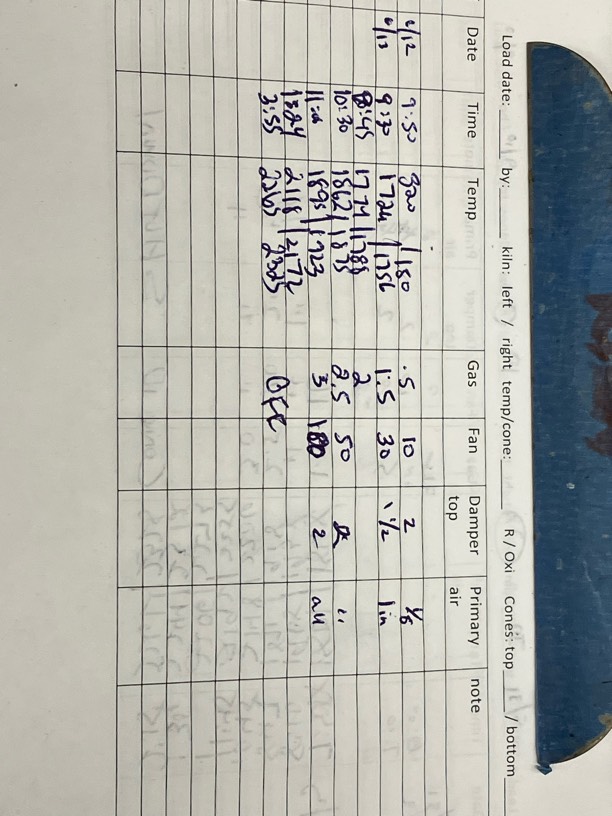 Load date: by: kiln: left / right temp/cone: R / Oxi Cones: top / bottom
Date Time Temp Gas Fan Damper top Primary air note
6/12 9:50 320 / 180 .5 10 2 1/8
6/13 9:30 1724 / 1756 1.5 30 1 1/2 1 in
8:45 1774 / 1788 2
10:30 1862 / 1875 2.5 50 "
1895 / 1923 3 100 2 all
2118 / 2172
3:55 2265 2325 OFF